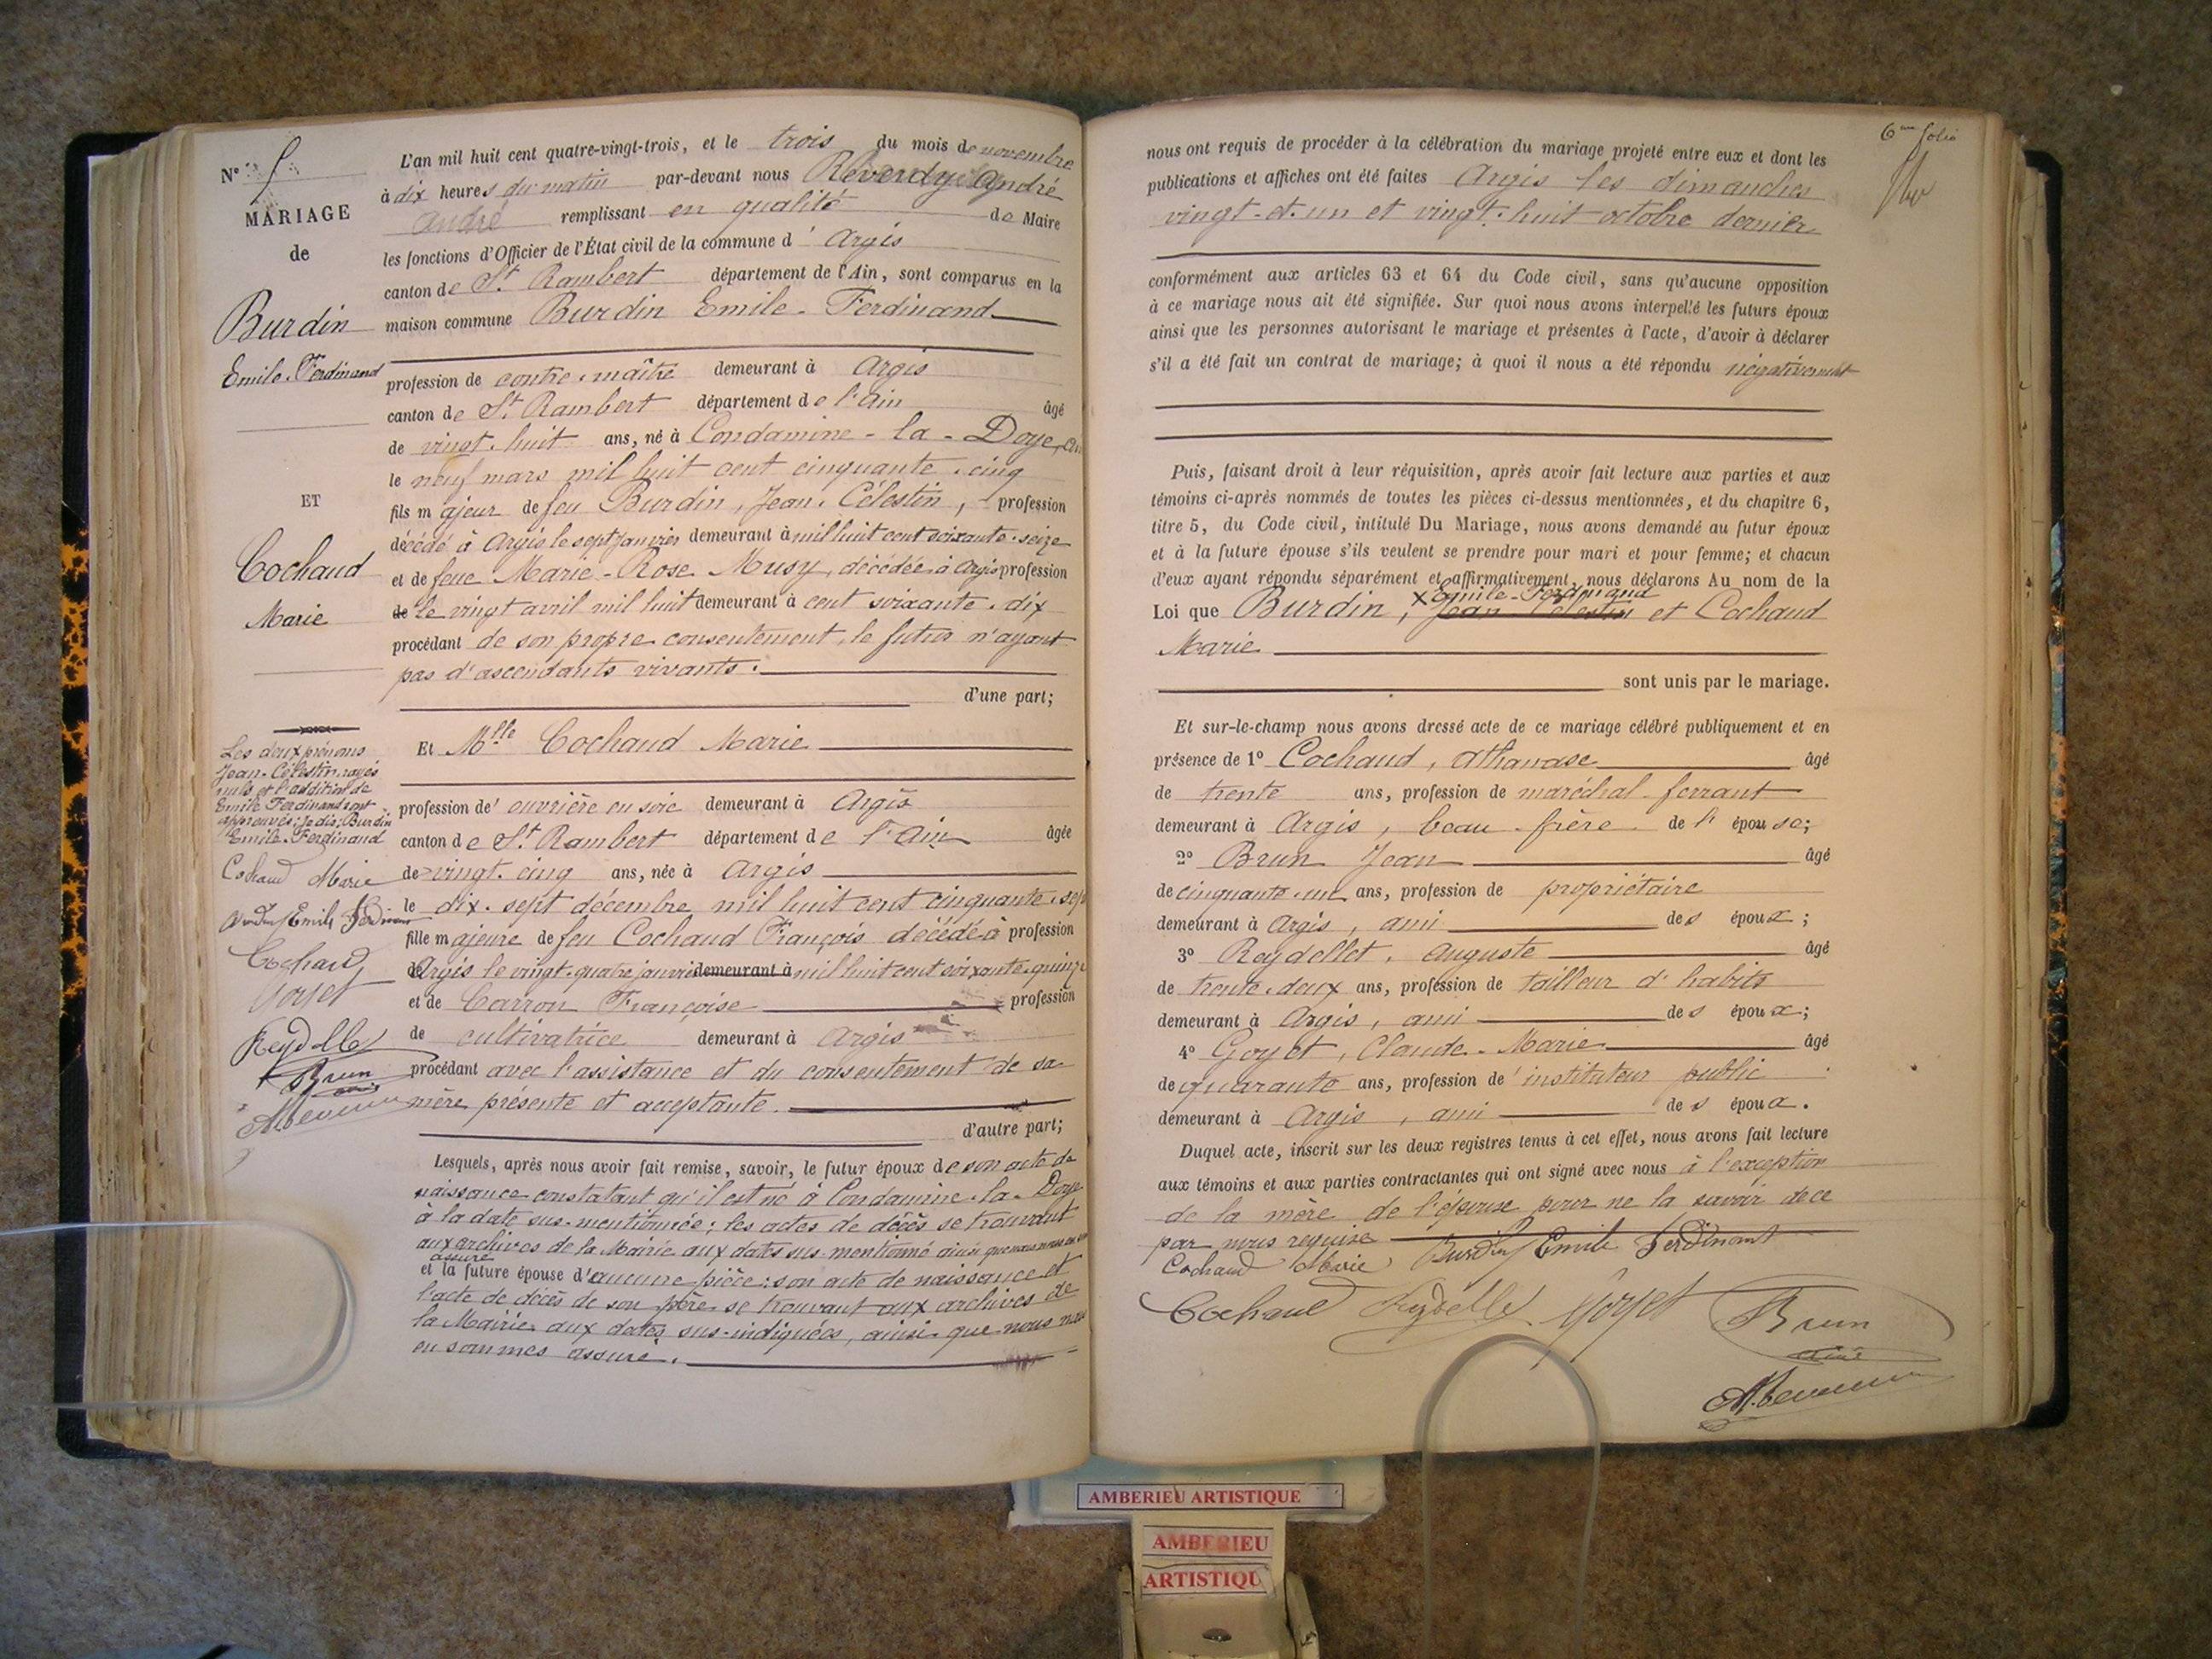 N° 5
MARIAGE
de
Burdin
Emile-Ferdinand
ET
Cochaud
Marie
Les deux prénoms
Jean-Célestin rayés
nuls et l'addition de
Emile Ferdinand sont
approuvés; Je dis; Burdin
Emile-Ferdinand
Cochaud Marie
Burdin Emile Ferdinand
Cochaud
Goyet
Reydellet
Brun
L'an mil huit cent quatre-vingt-trois, et le trois du mois de novembre
à dix heures du matin par-devant nous Réverdy André
André remplissant en qualité de Maire
les fonctions d'Officier de l'État civil de la commune d'Argis
canton de St Rambert département de l'Ain, sont comparus en la
maison commune Burdin Emile-Ferdinand
profession de contre-maître demeurant à Argis
canton de St Rambert département de l'Ain âgé
de vingt-huit ans, né à Condamine-la-Doye, Ain
le neuf mars mil huit cent cinquante-cinq
fils majeur de feu Burdin, Jean-Célestin, profession
décédé à Argis le sept janvier demeurant à mil huit cent soixante-seize
et de feue Marie-Rose Musy, décédée à Argis profession
de le vingt avril mil huit demeurant à cent soixante-dix
procédant de son propre consentement, le futur n'ayant
pas d'ascendants vivants.
d'une part;
Et Mlle Cochaud Marie
profession d'ouvrière en soie demeurant à Argis
canton de St Rambert département de l'Ain âgée
de vingt-cinq ans, née à Argis
le dix-sept décembre mil huit cent cinquante-sept
fille majeure de feu Cochaud François décédé à profession
de Argis le vingt-quatre janvier demeurant à mil huit cent soixante-quinze
et de Carron Françoise profession
de cultivatrice demeurant à Argis
procédant avec l'assistance et du consentement de sa
mère présente et acceptante.
d'autre part;
Lesquels, après nous avoir fait remise, savoir, le futur époux de son acte de
naissance constatant qu'il est né à Condamine-la-Doye
à la date sus-mentionnée; les actes de décès se trouvant
aux archives de la Mairie aux dates sus mentionné ainsi que nous nous en
assuré
et la future épouse d'aucune pièce: son acte de naissance et
l'acte de décès de son père se trouvant aux archives de
la Mairie aux dates sus-indiquées, ainsi que nous nous
en sommes assuré.
6me folio
nous ont requis de procéder à la célébration du mariage projeté entre eux et dont les
publications et affiches ont été faites Argis les dimanches
vingt-et-un et vingt-huit octobre dernier
conformément aux articles 63 et 64 du Code civil, sans qu'aucune opposition
à ce mariage nous ait été signifiée. Sur quoi nous avons interpellé les futurs époux
ainsi que les personnes autorisant le mariage et présentes à l'acte, d'avoir à déclarer
s'il a été fait un contrat de mariage; à quoi il nous a été répondu négativement
Puis, faisant droit à leur réquisition, après avoir fait lecture aux parties et aux
témoins ci-après nommés de toutes les pièces ci-dessus mentionnées, et du chapitre 6,
titre 5, du Code civil, intitulé Du Mariage, nous avons demandé au futur époux
et à la future épouse s'ils veulent se prendre pour mari et pour femme; et chacun
d'eux ayant répondu séparément et affirmativement, nous déclarons Au nom de la
x Emile-Ferdinand
Loi que Burdin, Jean Célestin et Cochaud
Marie
sont unis par le mariage.
Et sur-le-champ nous avons dressé acte de ce mariage célébré publiquement et en
présence de 1° Cochaud, Athanase âgé
de trente ans, profession de maréchal-ferrant
demeurant à Argis, beau-frère de l'épouse;
2° Brun Jean âgé
de cinquante-un ans, profession de propriétaire
demeurant à Argis, ami des époux;
3° Reydellet, Auguste âgé
de trente-deux ans, profession de tailleur d'habits
demeurant à Argis, ami des époux;
4° Goyet, Claude-Marie âgé
de quarante ans, profession d'instituteur public
demeurant à Argis, ami des époux.
Duquel acte, inscrit sur les deux registres tenus à cet effet, nous avons fait lecture
aux témoins et aux parties contractantes qui ont signé avec nous à l'exception
de la mère de l'épouse pour ne la savoir de ce
par nous requise
Cochaud Marie Burdin Emile Ferdinand
Cochaud Reydellet Goyet Brun
AMBERIEU ARTISTIQUE
AMBERIEU
ARTISTIQU